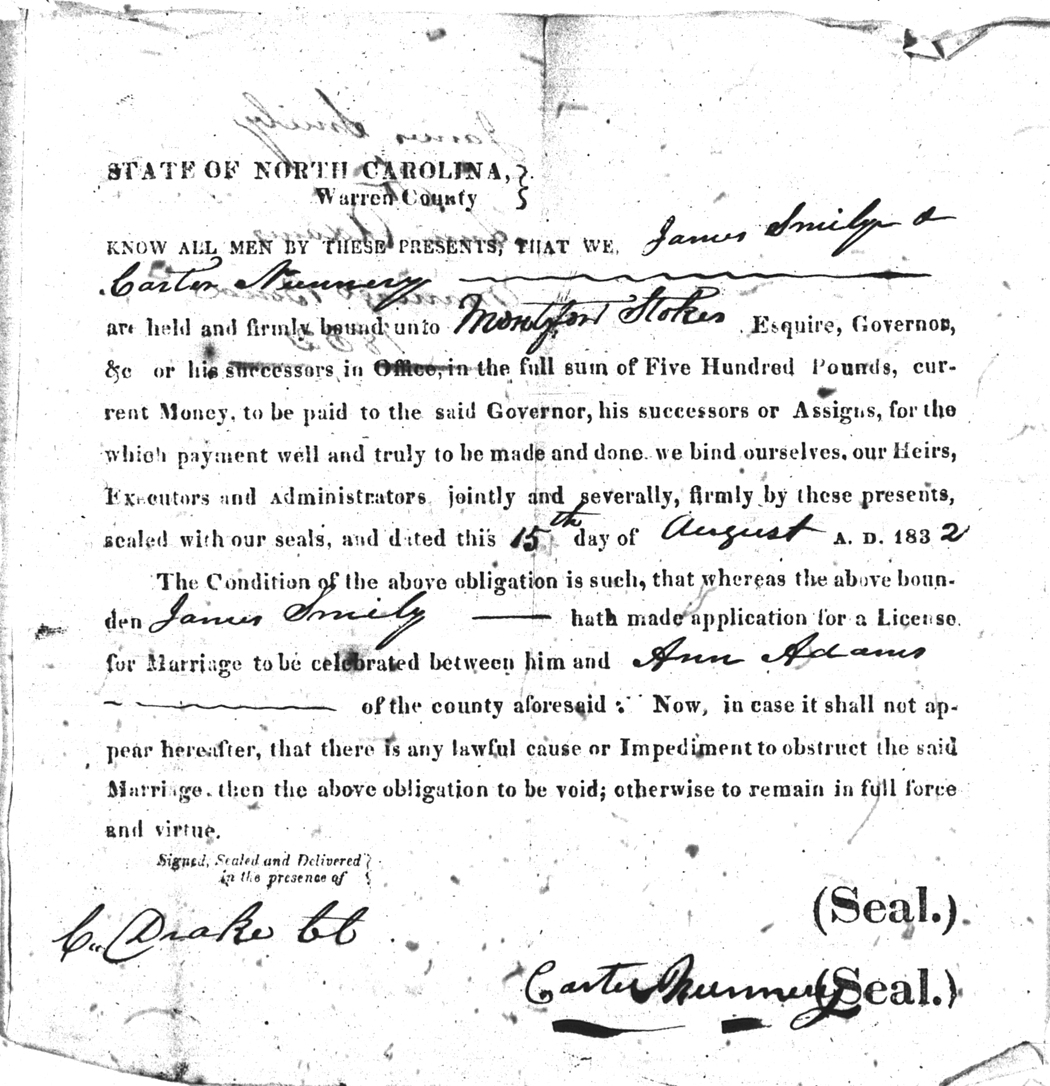 STATE OF NORTH CAROLINA,
Warren County
KNOW ALL MEN BY THESE PRESENTS, THAT WE, James Smily &
Carter Nunnery
are held and firmly bound unto Montford Stokes Esquire, Governor,
&c or his successors in Office, in the full sum of Five Hundred Pounds, cur-
rent Money, to be paid to the said Governor, his successors or Assigns, for the
which payment well and truly to be made and done. we bind ourselves, our Heirs,
Executors and Administrators jointly and severally, firmly by these presents,
sealed with our seals, and dated this 15th day of August A. D. 1832
The Condition of the above obligation is such, that whereas the above boun-
den James Smily hath made application for a License
for Marriage to be celebrated between him and Ann Adams
of the county aforesaid : Now, in case it shall not ap-
pear hereafter, that there is any lawful cause or Impediment to obstruct the said
Marriage, then the above obligation to be void; otherwise to remain in full force
and virtue.
Signed, Sealed and Delivered
in the presence of
(Seal.)
C. Drake
Carter Nunnery (Seal.)